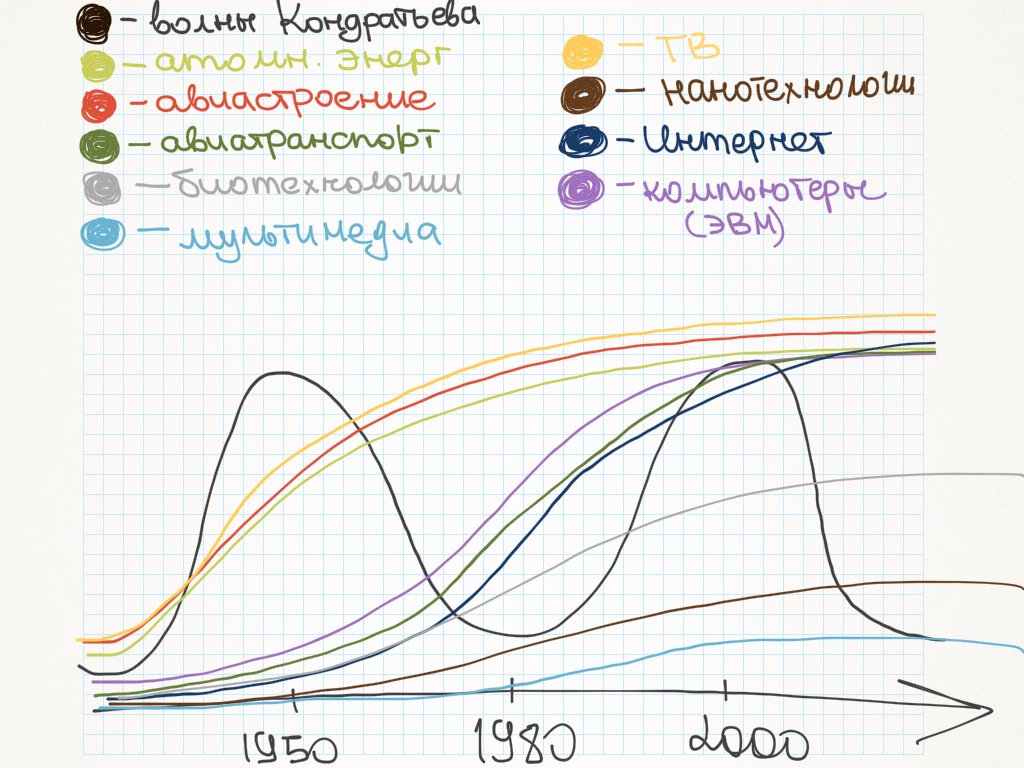 - волны Кондратьева
- атомн. энерг
- авиастроение
- авиатранспорт
- биотехнологии
- мультимедиа
- ТВ
- нанотехнологии
- Интернет
- компьютеры
(ЭВМ)
1950 1980 2000